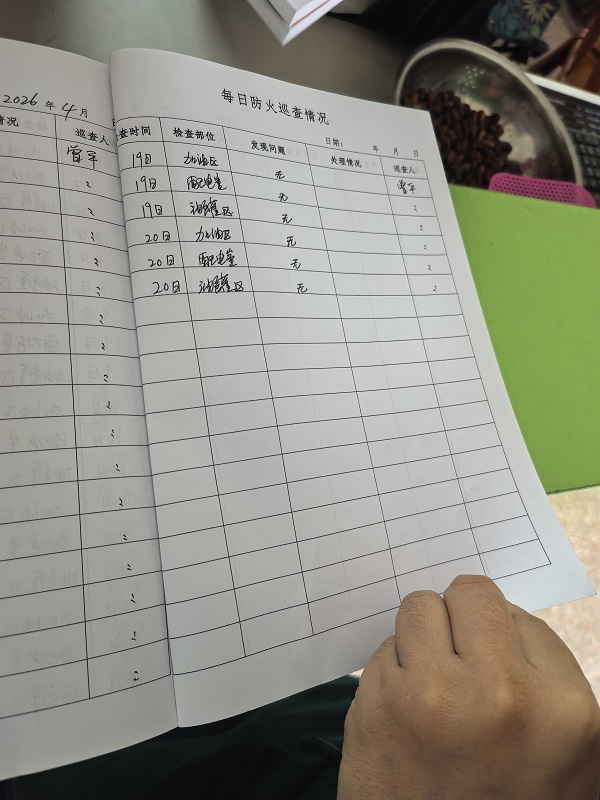 2026 年 4 月
情况
巡查人
曾平
每日防火巡查情况
日期: 年 月 日
查时间 检查部位 发现问题 处理情况 巡查人
19日 加油区 无 曾平
19日 配电室 无
19日 油罐区 无
20日 加油区 无
20日 配电室 无
20日 油罐区 无